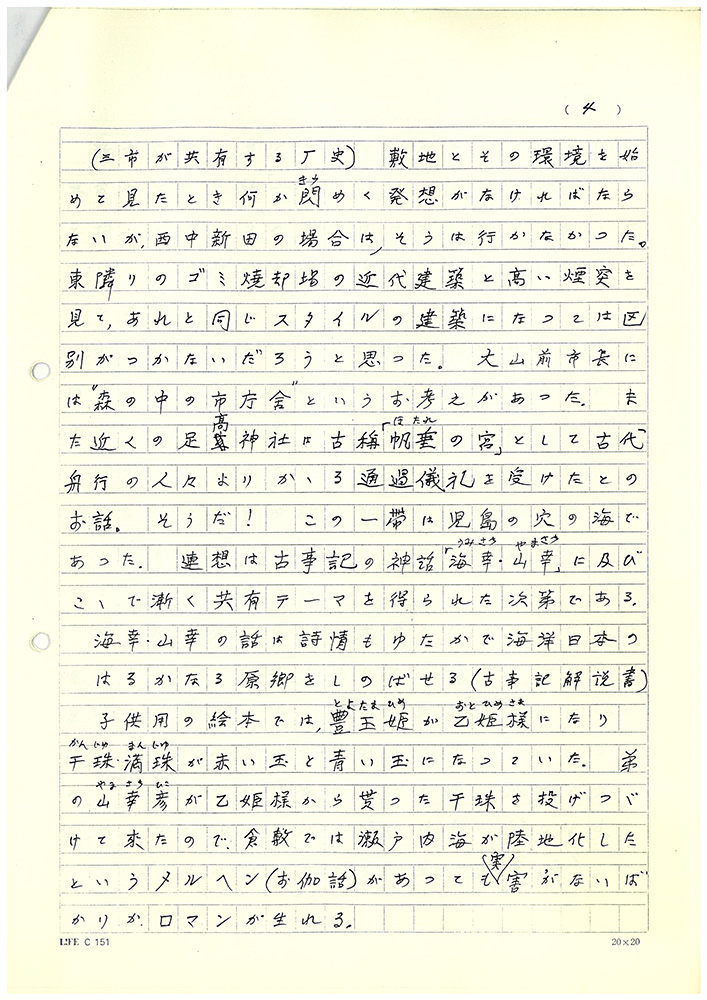 (4)
(三市が共有する歴史) 敷地とその環境を始
めて見たとき何か閃めく発想がなければなら
きら
ないが、西中新田の場合は、そうは行かなかつた。
東隣りのゴミ焼却場の近代建築と高い煙突を
見て、あれと同じスタイルの建築になつては区
別がつかないだろうと思つた。 大山前市長に
は"森の中の市庁舎"というお考えがあつた。 ま
た近くの足高神社は古称「帆垂の宮」として古代
ほたれ
舟行の人々よりかゝる通過儀礼を受けたとの
お話。 そうだ! この一帯は児島の穴の海で
あつた。 連想は古事記の神話「海幸・山幸」に及び
うみさち やまさち
こゝで漸く共有テーマを得られた次第である。
海幸・山幸の話は詩情もゆたかで海洋日本の
はるかなる原郷をしのばせる(古事記解説書)
子供用の絵本では、豊玉姫が乙姫様になり
とよたまひめ おとひめさま
干珠・満珠が赤い玉と青い玉になつていた。 弟
かんじゆ まんじゆ
の山幸彦が乙姫様から貰つた干珠を投げつゞ
やまさちひこ
けて来たので、倉敷では瀬戸内海が陸地化した
というメルヘン(お伽話)があつても実害がないば
かりか、ロマンが生れる。
LIFE C 151
20×20